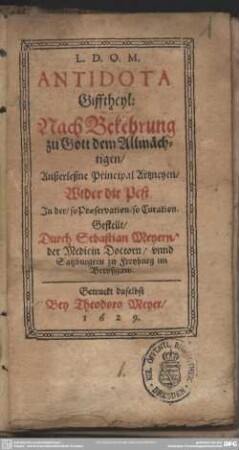 L. D. O. M.
ANTIDOTA
Gifftheyl:
Nach Bekehrung
zu Gott dem Allmäch-
tigen/
Außerleßne Principal Artzneyen/
Wider die Pest.
In der/ so Præservation/ so Curation.
Gestellt/
Durch Sebastian Meyern/
der Medicin Doctorn/ vnnd
Satzburgern zu Freyburg im
Breyßgaw.
Getruckt daselbst
Bey Theodoro Meyer/
1629.
DRESDEN